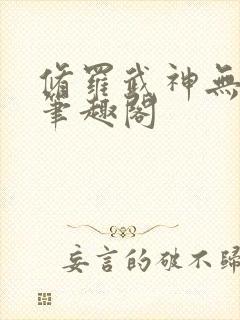 脩羅武神無
筆趣閣
妄言的破不歸